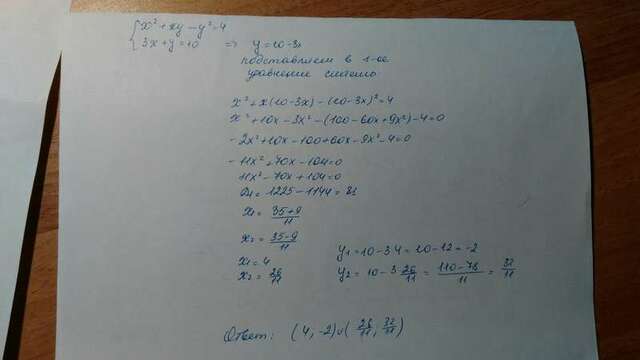 { x² + xy - y² = 4
3x + y = 10 ⇒ y = 10 - 3x
подставляем в 1-ое
уравнение системы
x² + x(10 - 3x) - (10 - 3x)² = 4
x² + 10x - 3x² - (100 - 60x + 9x²) - 4 = 0
-2x² + 10x - 100 + 60x - 9x² - 4 = 0
-11x² + 70x - 104 = 0
11x² - 70x + 104 = 0
D₁ = 1225 - 1144 = 81
x₁ = (35 + 9)/11
x₂ = (35 - 9)/11
x₁ = 4 y₁ = 10 - 3·4 = 10 - 12 = -2
x₂ = 26/11 y₂ = 10 - 3·26/11 = (110 - 78)/11 = 32/11
Ответ: (4, -2) ∪ (26/11; 32/11)